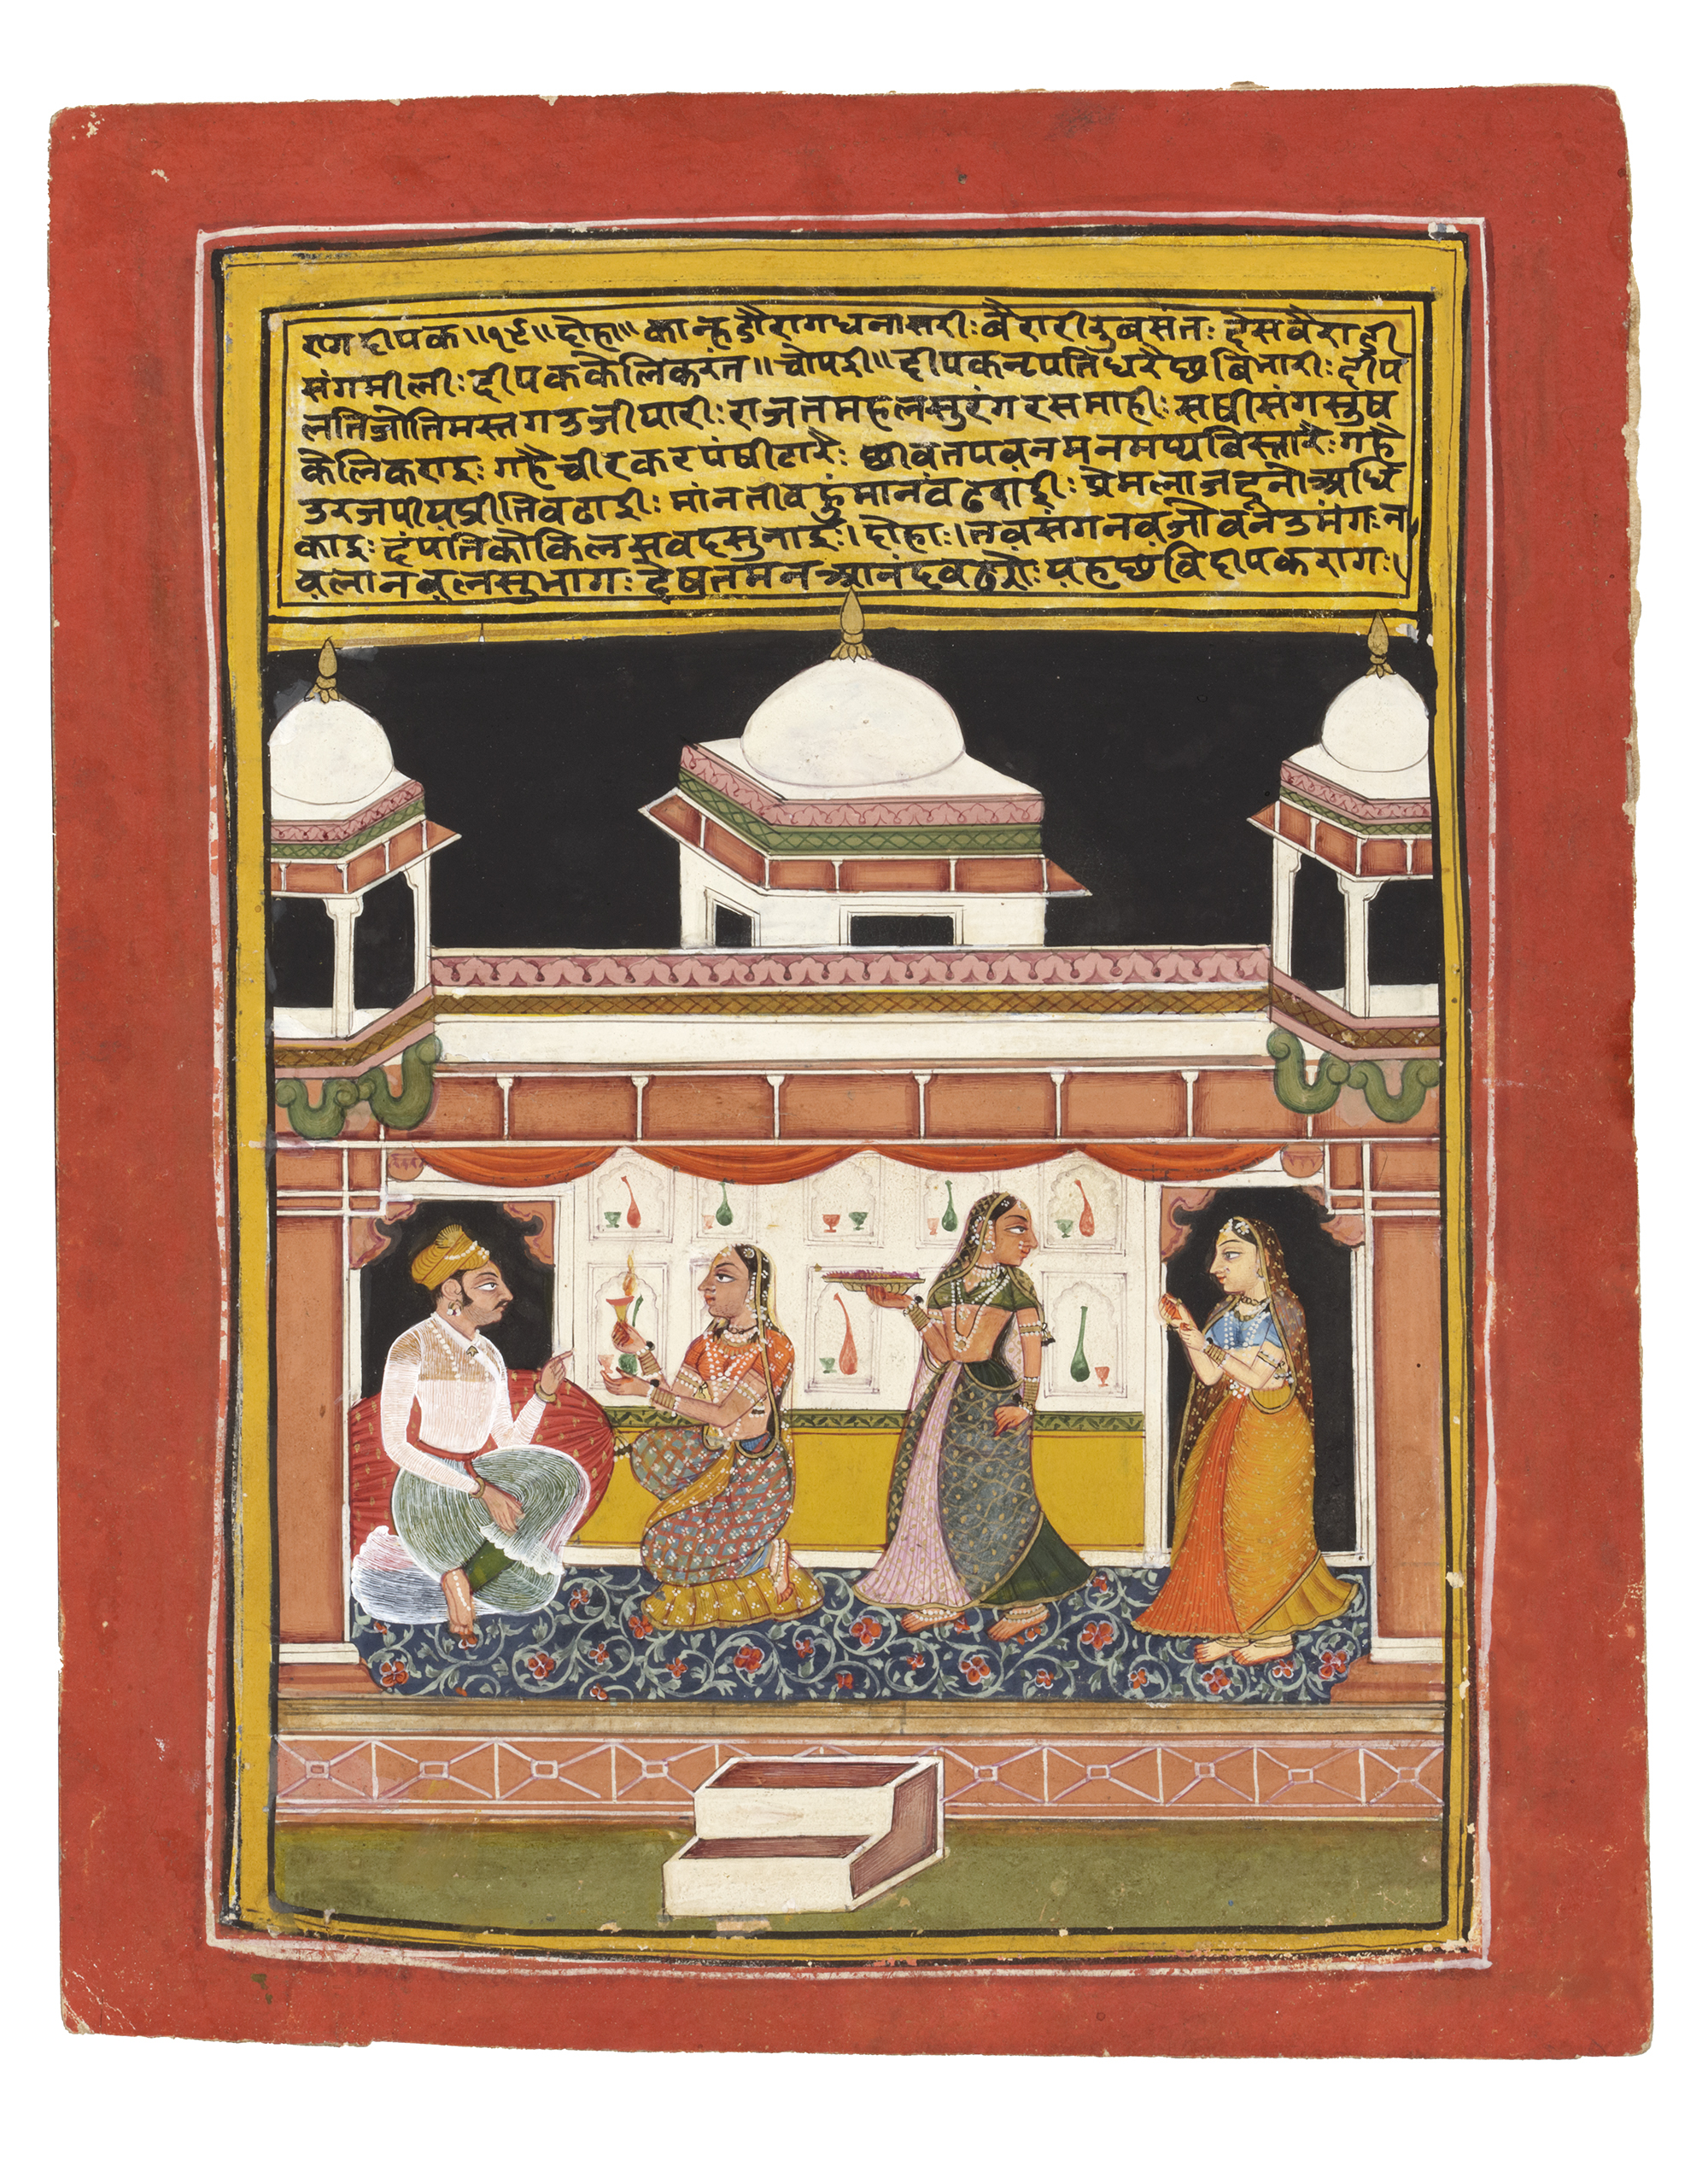 राग दीपक ॥१९॥ दोहा ॥ कान्हडौ राग धनासरी: बैरारी रु बसंत: देस वैराडी
संग मीली: दीपक केलि करंत ॥ चोपई ॥ दीपक नृपति धरै छबि भारी: दीप
लति जोति मस्तग उजीयारी: राजत महल सुरंग रस माही: सषी संग सुष
केलि कराइ: गहै चीर कर पंषी टारै: छीवत पवन मन मप्य बिस्तारै: गहै
उरज पीय प्रीति वढाई: मांनती व मांन वढवाई: प्रेम लाज दूनौ अधि
काइ: दंपति कोकिल सवद सुनाई: । दोहा: । नव संग नव जोवन उमंग: न
वला नवल सुभाग: देषत मन आनंद वढौ: यह छंवि दीपक राग: ।